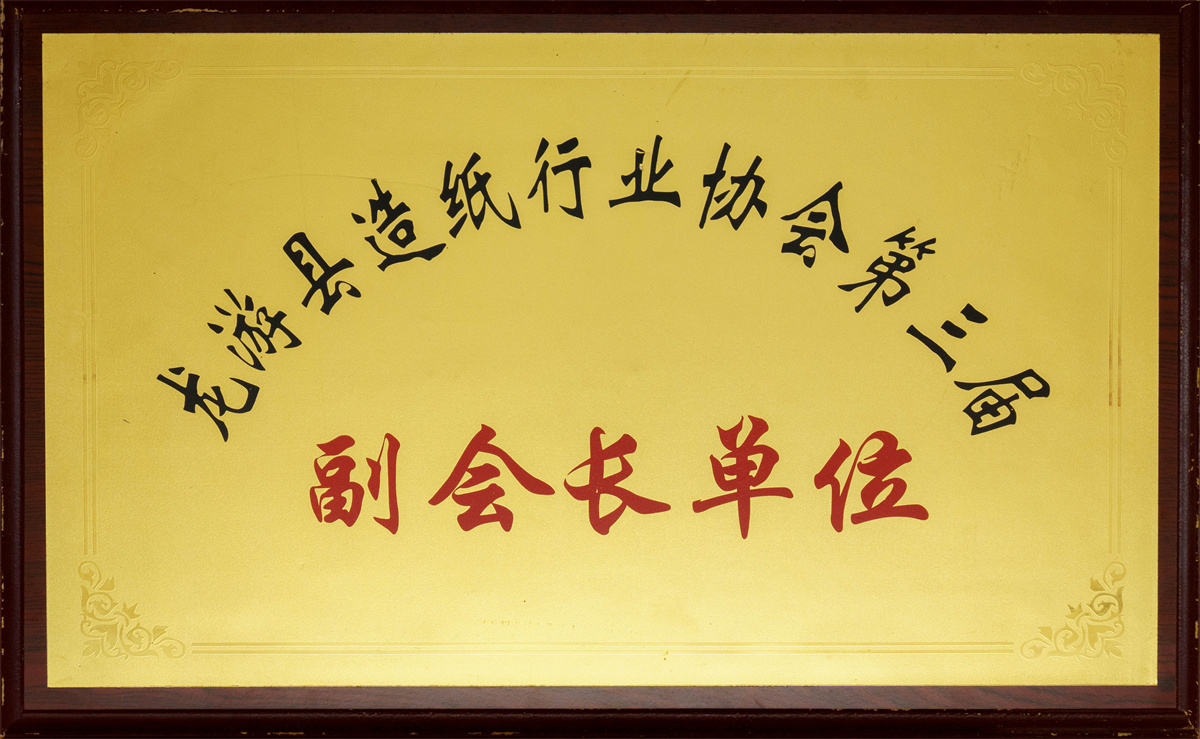 龙游县造纸行业协会第三届
副会长单位